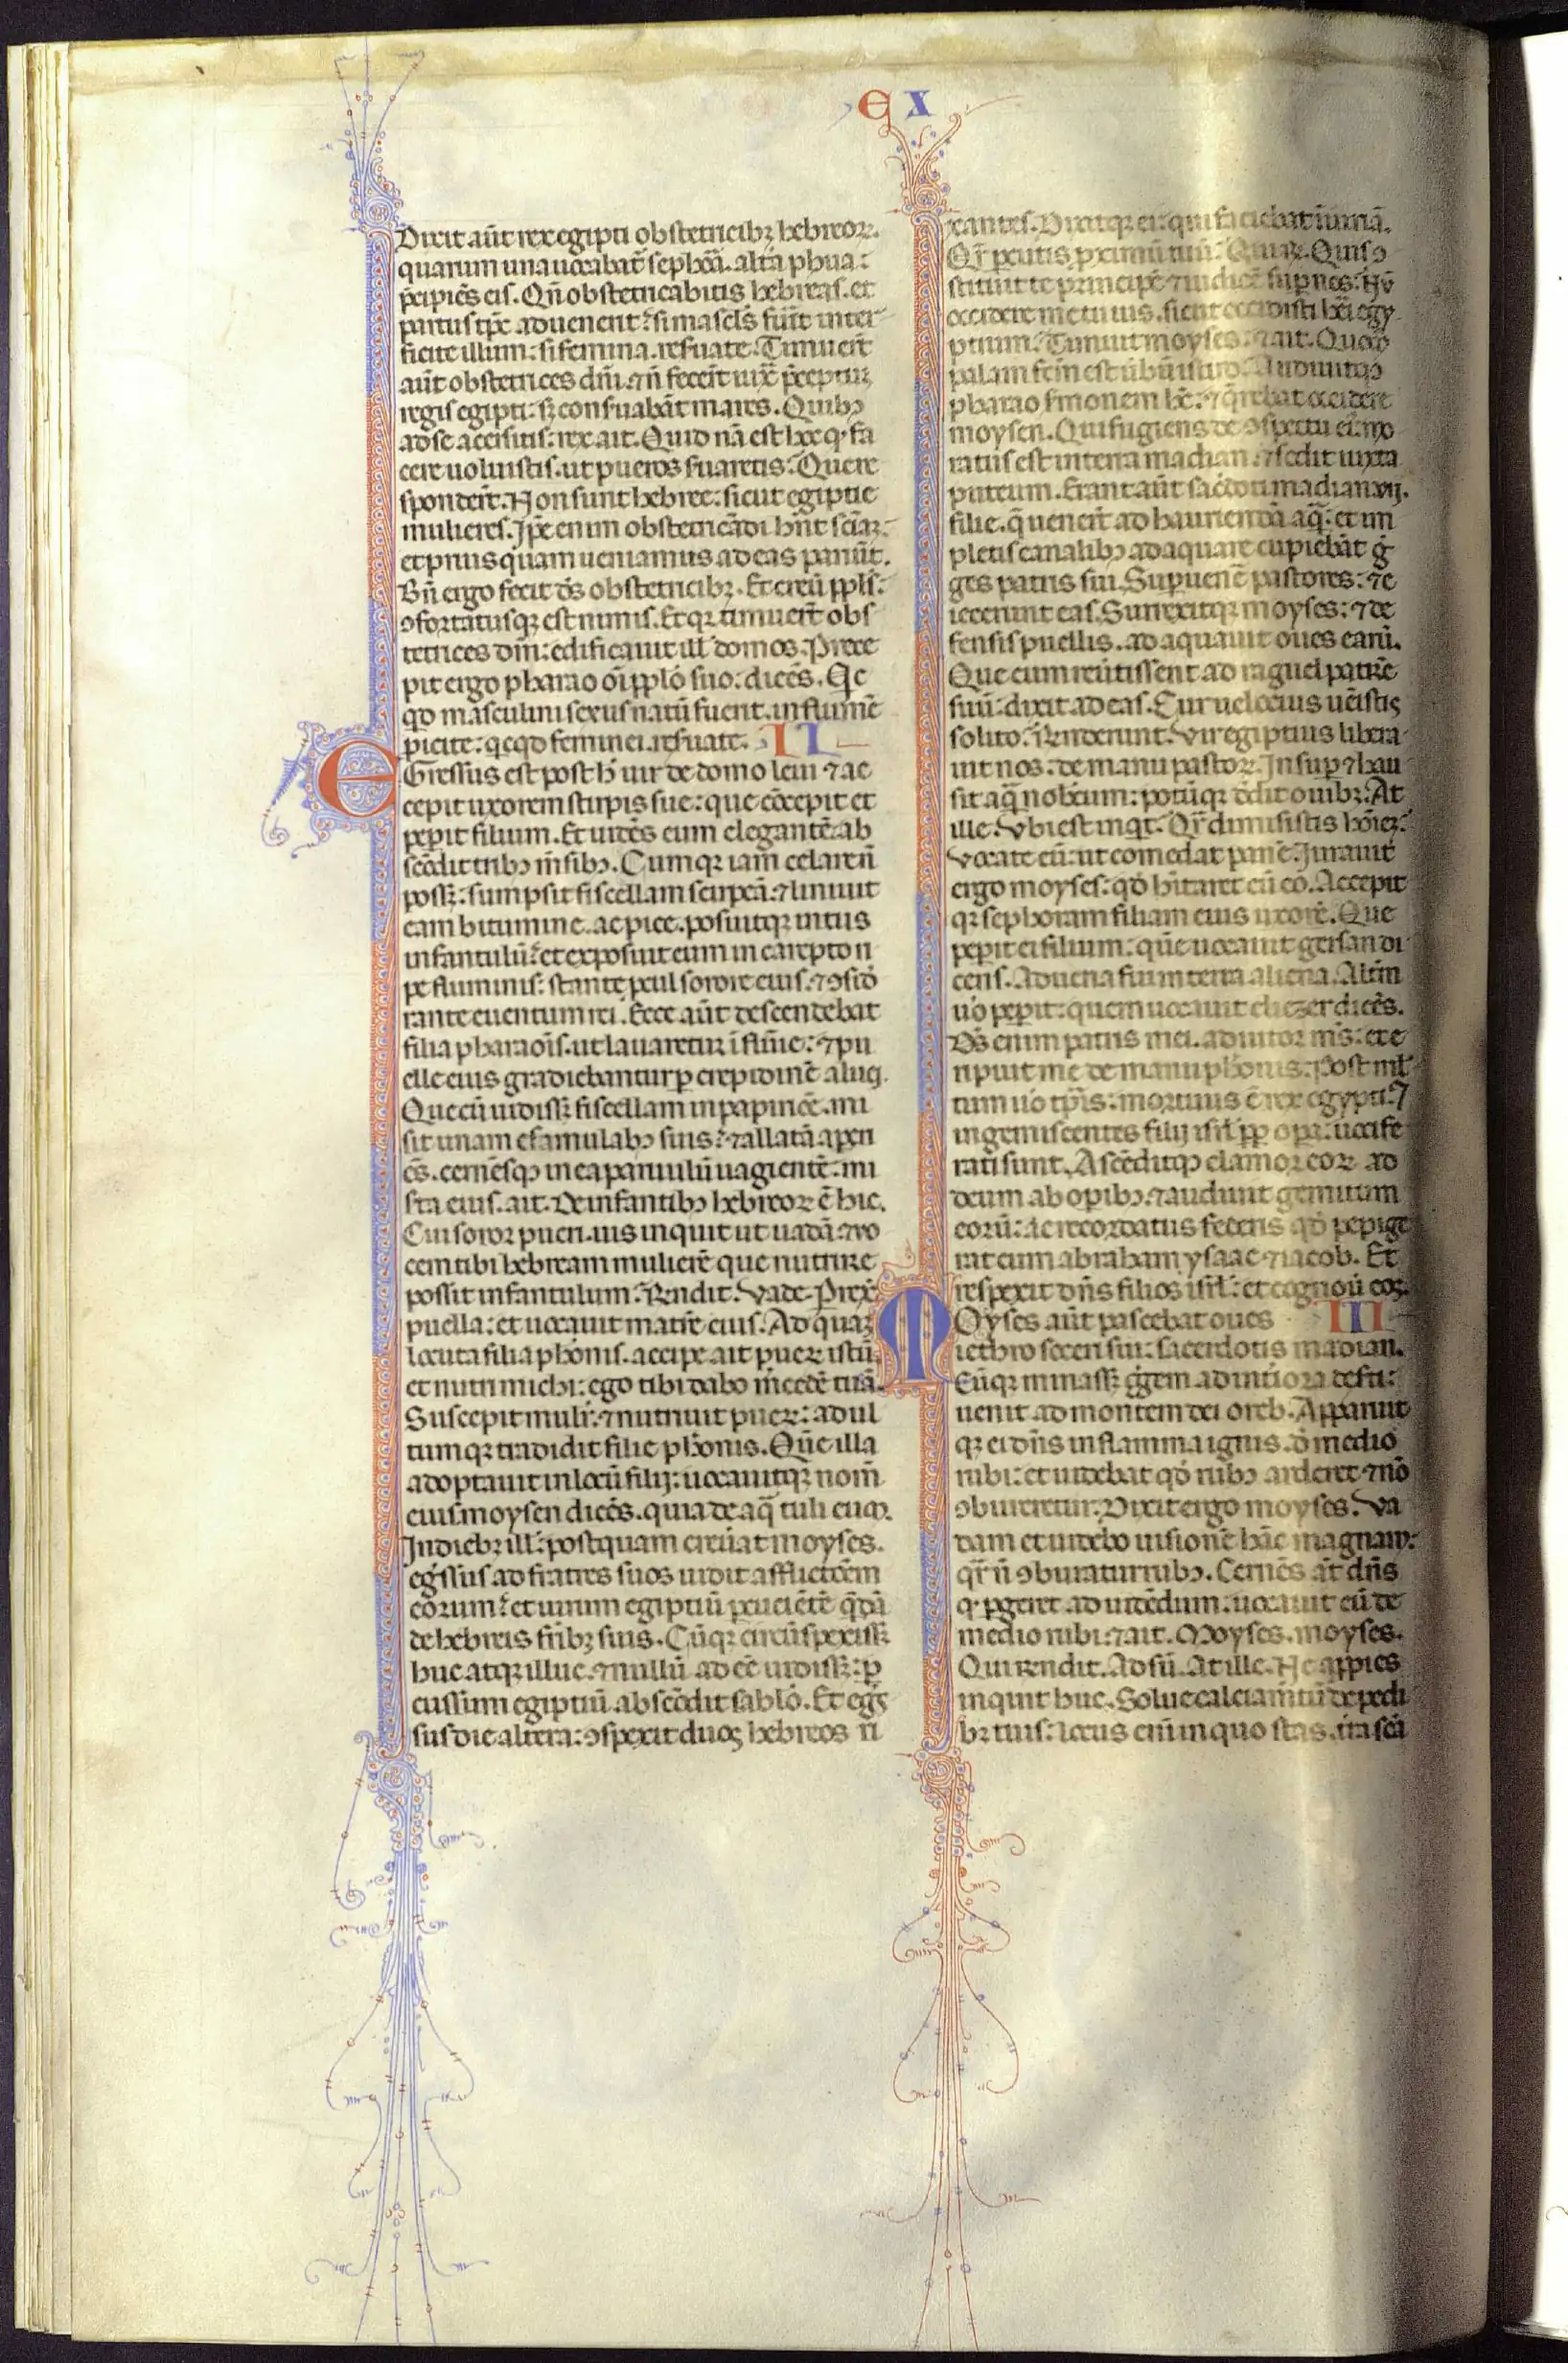 EX
Dixit aut̄ rex egipti obstetricibꝫ hebreoꝝ.
quarum una uocabat̄ sephora. alt̄a phua:
p̄cipiēs eis. Qn̄ obstetricabitis hebreas. et
partus tp̄c aduenerit: si mascl̓s fu̓it inter
ficite illum: si femina. res̓uate. Timuer̄t
aut̄ obstetrices dm̄. ⁊ n̄ fecer̄t iux̄ p̄ceptuꝫ
regis egipti: sꝫ cons̓uabāt mares. Quibꝯ
ad se accisitis: rex ait. Quid nā est hoc qđ fa
cere uoluistis. ut pueros s̓uaretis? Que re
sponder̄t. Non sunt hebree: sicut egiptie
mulieres. Ip̄e enim obstetricādi hn̄t sciāꝫ.
et priusquam ueniamus ad eas pariūt.
Bn̄ ergo fecit ds̄ obstetricibꝫ. Et creū ppl̓s:
ꝯfortatusqꝫ est nimis. Et qꝛ timuer̄t obs
tetrices dm̄: edificauit ill̓ domos. Prece
pit ergo pharao oī pplo suo: dicēs. Qc
qd masculini sexus natū fuerit. in flumē
ꝓicite: qcqd feminei. res̓uate. II
Egressus est post h̓ uir de domo leui ⁊ ac
cepit uxorem stirpis sue: que cōcepit et
peperit filium. Et uidēs eum elegantē: ab
scōdit tribꝯ m̄sibꝯ. Cumqꝫ iam celare n̄
possꝫ: sumpsit fiscellam scirpeā: ⁊ liniuit
eam bitumine. ac pice. posuitqꝫ intus
infantulū: et exposuit eum in carepto ri
pe fluminis: stante ꝓcul sorore eius. ⁊ ꝯsid̓
rante euentum rei. Ecce aut̄ descendebat
filia pharaoīs. ut lauaretur ī flūīe: ⁊ pu
elle eius gradiebantur ꝑ crepidinē aluei.
Que cū uidissꝫ fiscellam in papirōe. mi
sit unam e famulabꝯ suis: ⁊ allatā aperi
ēs. cernēsqꝫ in ea paruulū uagientē. mi
s̓ta eius. ait. De infantibꝯ hebreoꝝ ē hic.
Cui soror pueri. uis inquit ut uadā: ⁊ uo
cem tibi hebream mulierē que nutrire
possit infantulum? Rn̄dit. Vade. Prex̄
puella: et uocauit matrē eius. Ad quaꝫ
locuta filia phōnis. accipe ait pueꝝ istū.
et nutri michi: ego tibi dabo m̓cedē tuā.
Suscepit mulr̄. ⁊ nutriuit pueꝝ: adul
tumqꝫ tradidit filie phōnis. Quē illa
adoptauit in locū filij: uocauitqꝫ nom̄
eius moysen dicēs. quia de aq̄ tuli euꝫ.
In diebꝫ ill̓: postquam creuat moyses.
eg̓ssus ad fratres suos uidit afflictōem
eorum: et uirum egiptiū ꝑcucietē qdā
de hebreis fr̄ibꝫ suis. Cūqꝫ circūspexissꝫ
huc atqꝫ illuc. ⁊ nullū adeē uidissꝫ: ꝑ
cussum egiptiū. abscōdit sablo. Et eg̓s
sus die altera: ꝯspexit duos hebreos ri
xantes. Dixitqꝫ ei: qui faciebat iniuriā.
Qr̄ ꝑcutis ꝓximū tuū? Qui ait. Quis ꝯ
stituit te principē ⁊ iudicē sup nos? Nū
occidere me tu uis. sicut occidisti heri egy
ptium? Timuit moyses: ⁊ ait. Quōo
palam fcm̄ est ūbū istud? Audiuitqꝫ
pharao s̓monem hc̄. ⁊ q̄rebat occidere
moysen. Qui fugiens de ꝯspectu ei: mo
ratus est in terra madian. ⁊ sedit iuxta
puteum. Erant aut̄ sac̓doti madian vij.
filie. q̄ uenert̄ ad hauriendā aq̄: et im
pletis canalibꝯ adaquare cupiebāt g̓
ges patris sui. Suꝑuener̄ pastores: ⁊ e
iecerunt eas. Surrexitqꝫ moyses: ⁊ de
fensis puellis. adaquauit oues earū.
Que cum reūtissent ad raguel patrē
suū: dixit ad eas. Cur uelocius uēistis
solito? Rn̄derunt. Vir egiptius libera
uit nos: de manu pastoꝝ. Insuꝑ ⁊ hau
sit aq̄ nobiscum: potūqꝫ dedit ouibꝫ. At
ille. Vbi est inqt̄. Qr̄ dimisistis hōīeꝫ?
Vocate eū: ut comedat panē. Iurauit
ergo moyses: qđ hītaret cū eo. Accepit
qꝫ sephoram filiam eius uxorē. Que
peperit ei filium: quē uocauit gersan di
cens. Aduena fui in terra aliena. Altm̄
uo peperit: quem uocauit eliezer dicēs.
Ds̄ enim patris mei. adiutor m̄s: et e
ripuit me de manu phōnis. Post ml̓
tum uo tp̄is: mortuus ē rex egypti: ⁊
ingemiscentes filij isrl̓ ꝓp opa: uocife
rati sunt. Ascēditqꝫ clamor eoꝝ ad
deum ab oꝑibꝯ. ⁊ audiuit gemitum
eorū: ac recordatus federis qđ pepige
rat cum abraham ysaac ⁊ iacob. Et
respexit dn̄s filios isrl̓: et cognouit eos.
Moyses aut̄ pascebat oues III
iethro soceri sui: sacerdotis madian.
Cūqꝫ minassꝫ g̓gem ad intiora des̓ti:
uenit ad montem dei oreb. Apparuit
qꝫ ei dn̄s in flamma ignis. d̓ medio
rubi: et uidebat qđ rubꝯ arderet ⁊ nō
ꝯbureretur. Dixit ergo moyses. Va
dam et uidebo uisionē hāc magnam:
qr̄ n̄ ꝯburatur rubꝯ. Cernēs at̄ dn̄s
qđ ꝑgeret ad uidēdum: uocauit eū de
medio rubi: ⁊ ait. Moyses. moyses.
Qui rn̄dit. Adsū. At ille. Ne appies
inquit huc. Solue calciam̄tū de pedi
bꝫ tuis: locus eni in quo stas. t̄ra scā